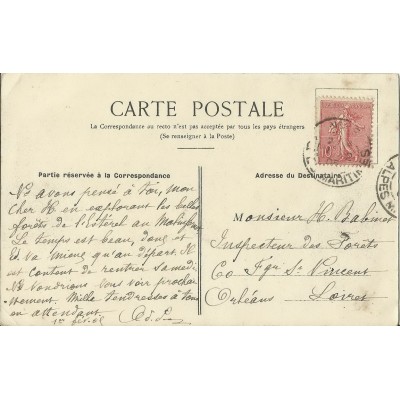 CARTE POSTALE
La Correspondance au recto n'est pas acceptée par tous les pays étrangers
(Se renseigner à la Poste)
Partie réservée à la Correspondance
Adresse du Destinataire
Ns avons pensé à toi, mon
cher H en explorant les belles
forêts de l'Estérel au
Le temps est beau, donc
Ed va mieux qu'au départ. Il
est content de rentrer Samedi.
Ns voudrions vous voir prochai
nement. Mille tendresses à tous
en attendant
Monsieur H. Babinet
Inspecteur des Forêts
60 Fgr St Vincent
Orléans Loiret
MARITIMES
ALPES M